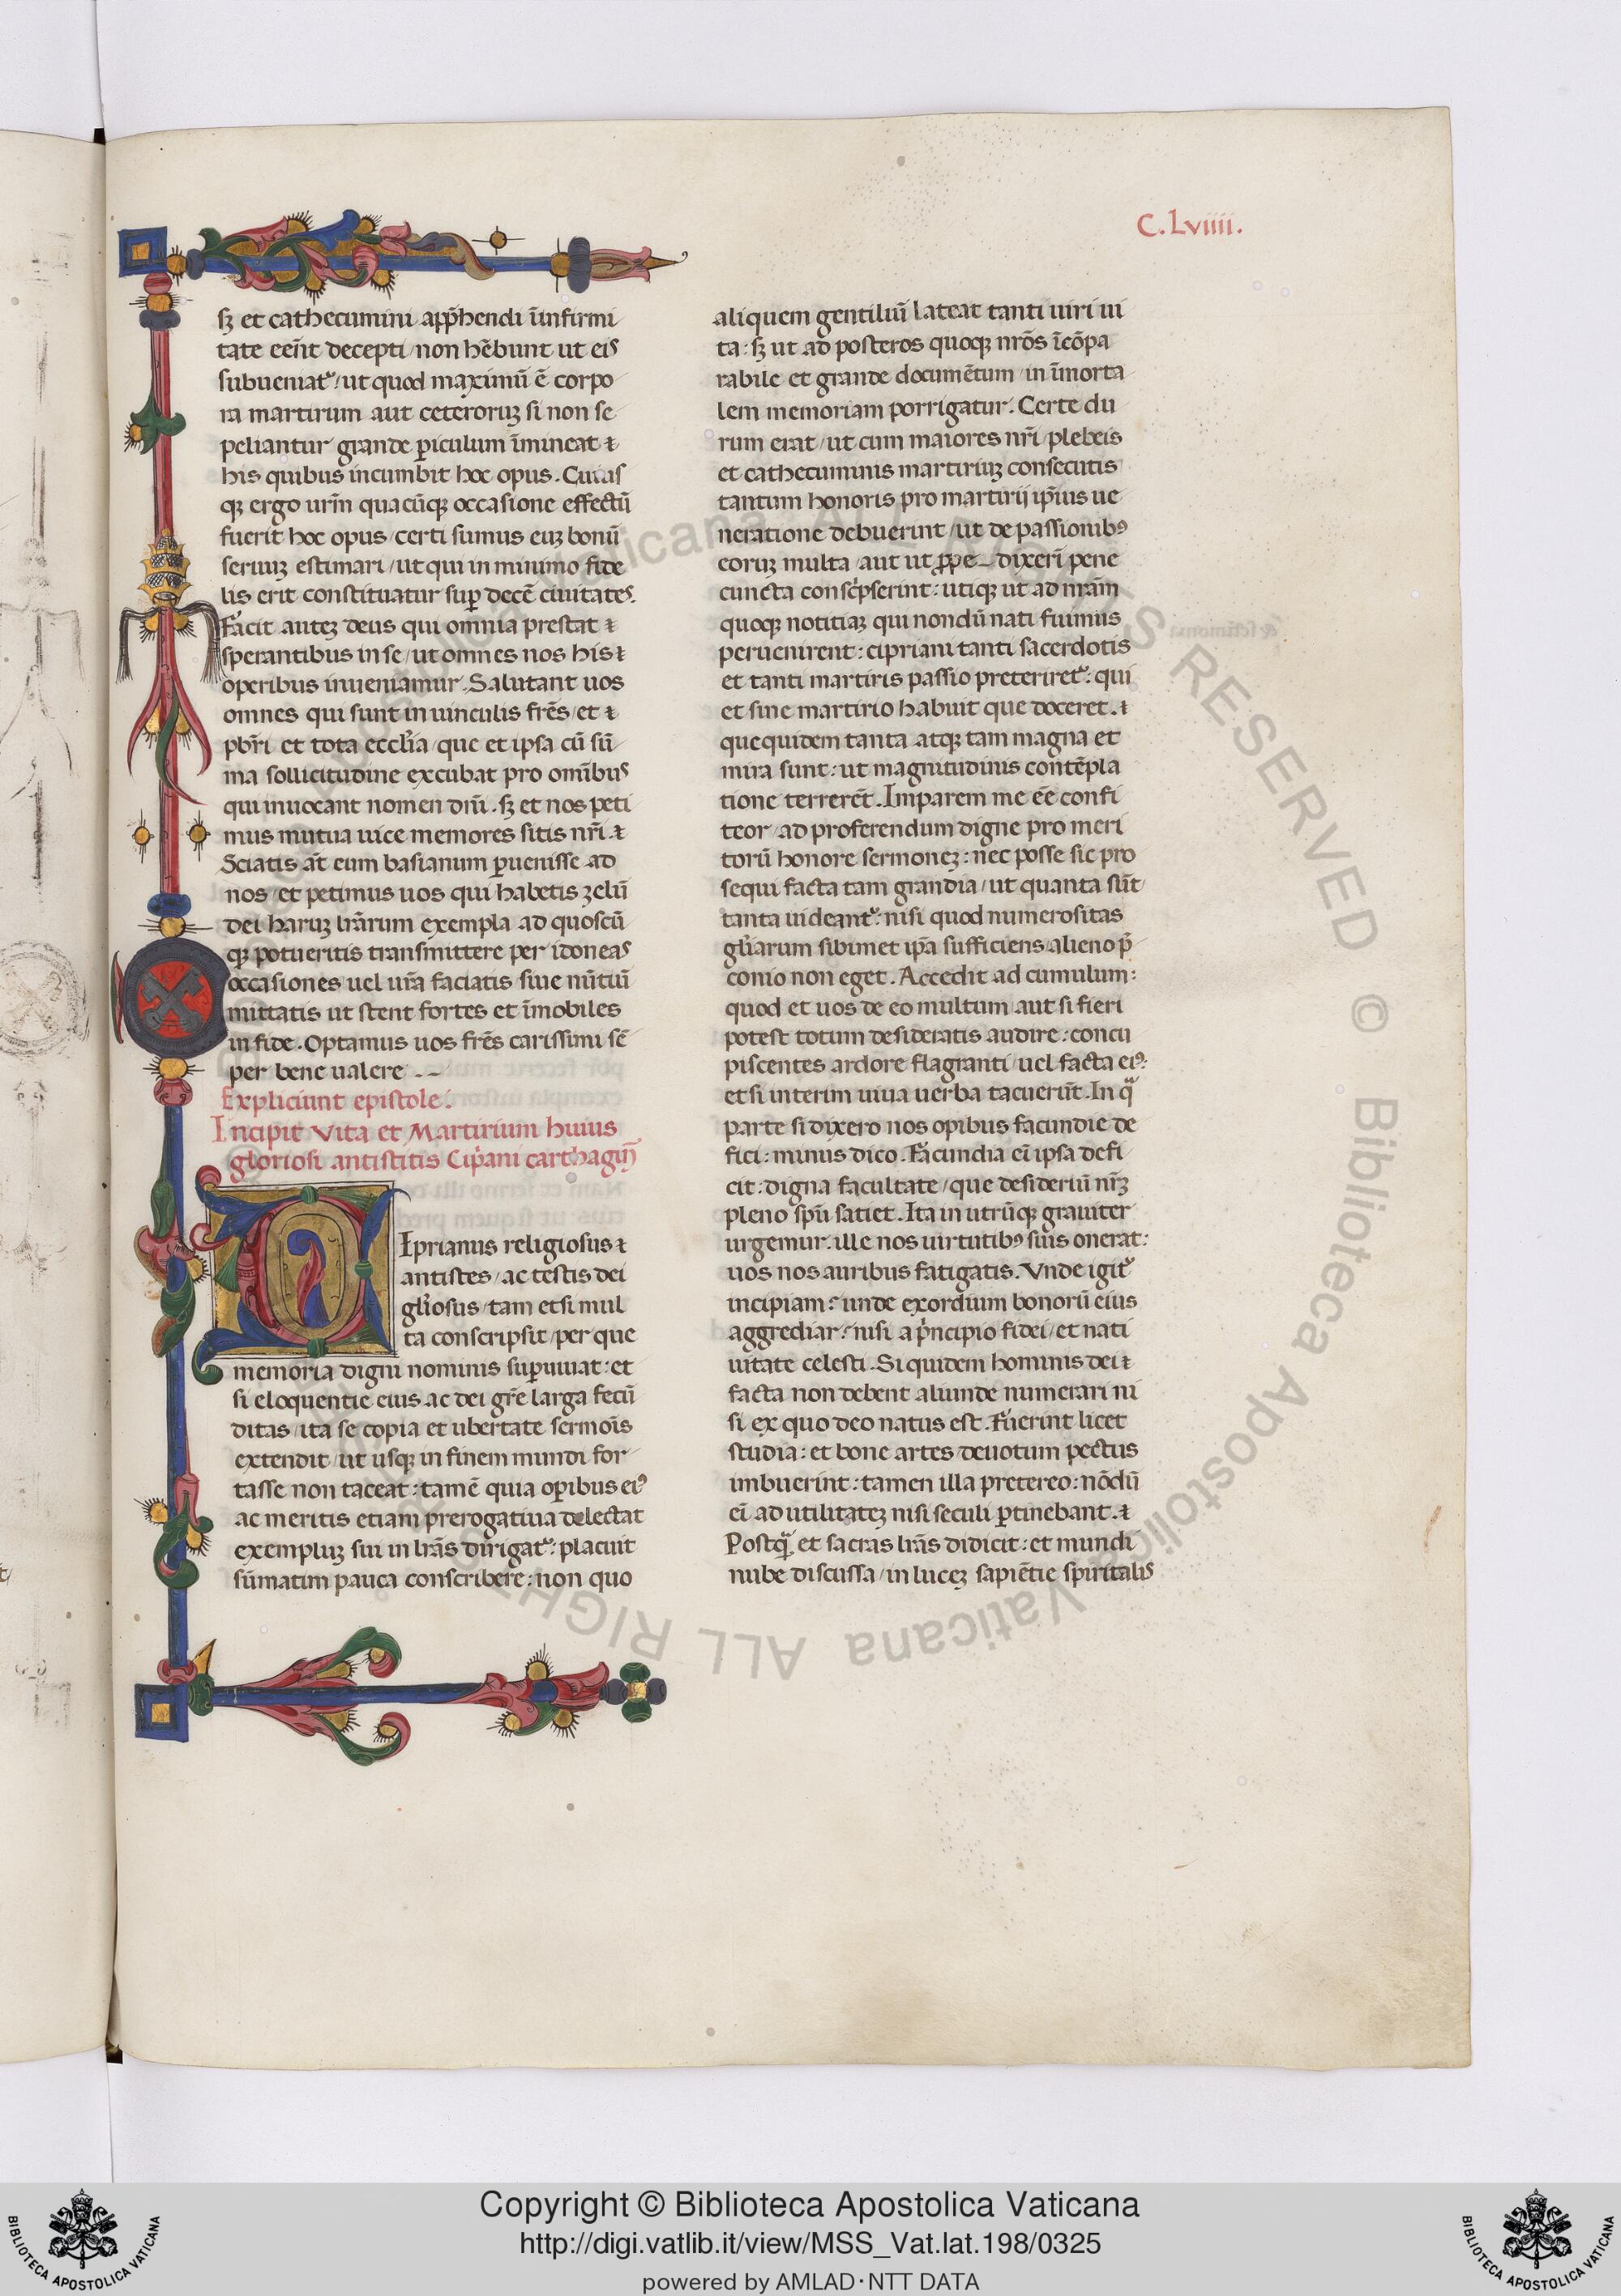 C.Lviiii.
sꝫ et cathecumini app̄hendi ī infirmi
tate eēnt decepti / non hēbunt ut eis
subueniatᷣ / ut quod maximū ē corpo
ra martirum aut ceteroruꝫ si non se
peliantur grande ꝑiculum īmineat
his quibus incumbit hoc opus. Cuius
qꝫ ergo urm̄ quacūqꝫ occasione effectū
fuerit hoc opus / certi sumus euꝫ bonū
seruuꝫ estimari / ut qui in minimo fide
lis erit constituatur suꝑ decē ciuitates.
Facit auteꝫ deus qui omnia prestat
sperantibus in se / ut omnes nos his
operibus inueniamur. Salutant uos
omnes qui sunt in uinculis frēs / et
pbr̄i et tota eccl̄ia / que et ipsa cū sū
ma sollicitudine excubat pro omībus
qui inuocant nomen dnī. sꝫ et nos peti
mus mutua uice memores sitis nr̄i
Sciatis at̄ eum basianum ꝑuenisse ad
nos / et petimus uos qui habetis zelū
dei haruꝫ lr̄arum exempla ad quoscū
qꝫ potueritis transmittere per idoneas
occasiones uel ur̄a faciatis siue nūtiū
mittatis ut stent fortes et īmobiles
in fide. Optamus uos frēs carissimi sē
per bene ualere
Expliciunt epistole.
Incipit Vita et Martirium huius
gloriosi antistitis Cip̄ani carthagin̄
Iprianus religiosus
antistes / ac testis dei
gl̄iosus / tam etsi mul
ta conscripsit / per que
memoria digni nominis suꝑuiuat: et
si eloquentie eius ac dei gr̄e larga fecū
ditas / ita se copia et ubertate sermoīs
extendit / ut usqꝫ in finem mundi for
tasse non taceat: tamē quia oꝑibus eiꝰ
ac meritis etiam prerogatiua delectat
exempluꝫ sui in lr̄as dirigatᷣ: placuit
sūmatim pauca conscribere: non quo
aliquem gentiliū lateat tanti uiri ui
ta: sꝫ ut ad posteros quoqꝫ nr̄os īcōpa
rabile et grande documētum / in īmorta
lem memoriam porrigatur. Certe du
rum erat / ut cum maiores nr̄i / plebeis
et cathecuminis martiriuꝫ consecutis
tantum honoris pro martirij ip̄ius ue
neratione debuerint / ut de passionibꝰ
eoruꝫ multa aut ut ꝓpe dixeri pene
cuncta consc̄pserint: utiqꝫ ut ad nr̄am
quoqꝫ notitiaꝫ qui nondū nati fuimus
peruenirent: cipriani tanti sacerdotis
et tanti martiris passio preteriretᷣ: qui
et sine martirio habuit que doceret.
que quidem tanta atqꝫ tam magna et
mira sunt: ut magnitudinis contēpla
tione terrerēt. Imparem me eē confi
teor / ad proferendum digne pro meri
torū honore sermoneꝫ: nec posse sic pro
sequi facta tam grandia / ut quanta sūt
tanta uideantᷣ: nisi quod numerositas
gl̄iarum sibimet ip̄a sufficiens / alieno p̄
conio non eget. Accedit ad cumulum:
quod et uos de eo multum aut si fieri
potest totum desideratis audire: concu
piscentes ardore flagranti / uel facta eiꝰ:
et si interim uiua uerba tacuerūt. In qͣ
parte si dixero nos opibus facundie de
fici: minus dico. Facundia eī ipsa defi
cit: digna facultate / que desideriū nr̄ꝫ
pleno spū satiet. Ita in utrūqꝫ grauiter
urgemur. ille nos uirtutibꝰ suis onerat:
uos nos auribus fatigatis. Vnde igitᷣ
incipiam: unde exordium bonorū eius
aggrediar: nisi a p̄ncipio fidei / et nati
uitate celesti. Siquidem hominis dei
facta non debent aliunde numerari ni
si ex quo deo natus est. Fuerint licet
studia: et bone artes deuotum pectus
imbuerint: tamen illa pretereo: nōdū
eī ad utilitateꝫ nisi seculi ꝑtinebant.
Postqͣ et sacras lr̄as didicit: et mundi
nube discussa / in luceꝫ sapiētie spiritalis
Copyright © Biblioteca Apostolica Vaticana
http://digi.vatlib.it/view/MSS_Vat.lat.198/0325
powered by AMLAD·NTT DATA
BIBLIOTECA APOSTOLICA VATICANA
BIBLIOTECA APOSTOLICA VATICANA